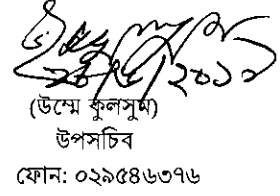 (উম্মে কুলসুম)
উপসচিব
ফোন: ০২৯৫৪৬৩৭৬